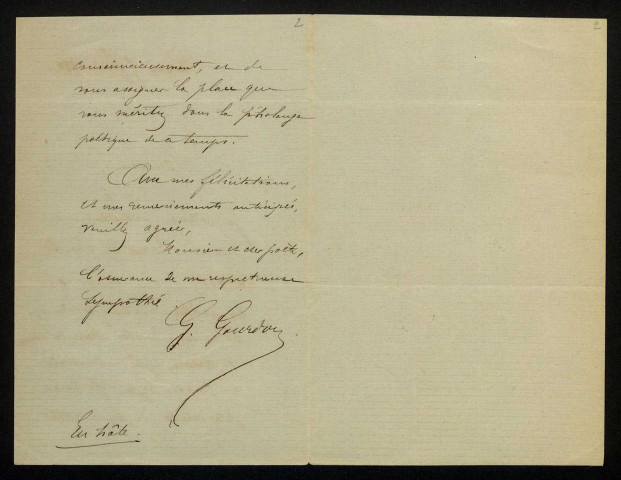 2
2
consciencieusement, et de
vous assigner la place que
vous méritez dans la phalange
poétique de ce temps.
Avec mes félicitations,
et mes remerciements anticipés,
veuillez agréer,
Monsieur et cher poète,
l'assurance de ma respectueuse
sympathie
G. Gourdon
En hâte.